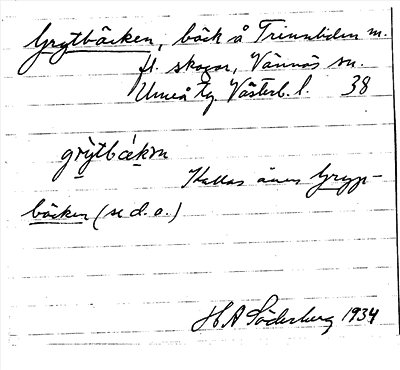 Grytbäcken, bäck å Trinnliden m.
fl. skogar, Vännäs sn.
Umeå tg. Västerb. l. 38
grỳtbäkɛn
Kallas även Gryp-
bäcken (se d. o.)
H A Söderberg 1934